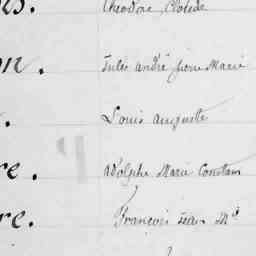 Théodore, Clotilde
on. Jules andré pierre Marie
Louis auguste
re. adolphe Marie Constan
re. François Jean Mie